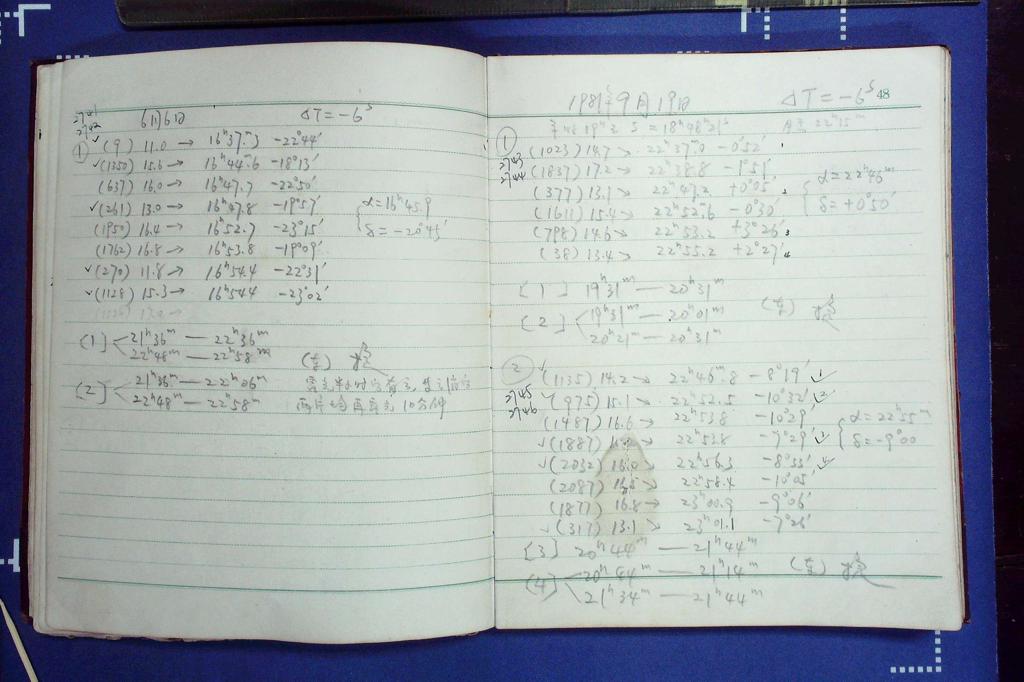 2741
2742
6月6日 ΔT=-6ˢ
① ✓(9) 11.0 → 16ʰ37.ᵐ3 -22°44′
✓(1350) 15.6 → 16ʰ44.ᵐ6 -18°13′
(637) 16.0 → 16ʰ47.7 -22°50′
✓(261) 13.0 → 16ʰ47.8 -19°57′
α=16ʰ45.9
(1950) 16.4 → 16ʰ52.7 -23°15′
δ=-20°45′
(1762) 16.8 → 16ʰ53.8 -19°09′
✓(270) 11.8 → 16ʰ54.4 -22°31′
✓(1128) 15.3 → 16ʰ54.4 -23°02′
[1] 21ʰ36ᵐ — 22ʰ36ᵐ
22ʰ48ᵐ — 22ʰ58ᵐ
(东)
[2] 21ʰ36ᵐ — 22ʰ06ᵐ
22ʰ48ᵐ — 22ʰ58ᵐ
两片均再露光10分钟
1981年9月19日 ΔT=-6ˢ 48
= 18ʰ48ᵐ21ˢ 22ʰ15ᵐ
①
2743
2744
(1023) 14.7 → 22ʰ37.ᵐ0 -0°52′
(1837) 17.2 → 22ʰ38.8 -1°51′
(377) 13.1 → 22ʰ47.2 +0°05′
α=22ʰ45ᵐ
(1611) 15.4 → 22ʰ52.ᵐ6 -0°30′
δ=+0°50′
(798) 14.6 → 22ʰ53.2 +3°26′
(38) 13.4 → 22ʰ55.2 +2°27′
[1] 19ʰ31ᵐ — 20ʰ31ᵐ
[2] 19ʰ31ᵐ — 20ʰ01ᵐ
20ʰ21ᵐ — 20ʰ31ᵐ
(东)
②
2745
2746
✓(1135) 14.2 → 22ʰ46.ᵐ8 -8°19′ ✓1
✓(975) 15.1 → 22ʰ52.5 -10°32′ ✓2
(1487) 16.6 → 22ʰ53.8 -10°29′
α=22ʰ55ᵐ
✓(1887) → 22ʰ53.8 -7°29′ ✓
δ=-9°00
✓(2032) 16.0 → 22ʰ56.3 -8°33′ ✓
(2087) 16.5 → 22ʰ58.4 -10°05′
(1877) 16.8 → 23ʰ00.9 -9°06′
✓(317) 13.1 → 23ʰ01.1 -7°26′
[3] 20ʰ44ᵐ — 21ʰ44ᵐ
[4] 20ʰ44ᵐ — 21ʰ14ᵐ
21ʰ34ᵐ — 21ʰ44ᵐ
(东)